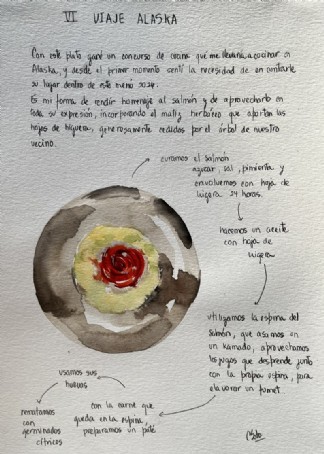 VI VIAJE ALASKA
Con este plato gané un concurso de cocina que me llevaría a cocinar a
Alaska, y desde el primer momento sentí la necesidad de
su lugar dentro de este menú 2024.
Es mi forma de rendir homenaje al salmón y de aprovecharlo en
toda su expresión, incorporando el matiz herbáceo que aportan las
hojas de higuera, generosamente cedidas por el árbol de nuestro
vecino.
curamos el salmón
azucar, sal, pimienta y
envolvemos con hoja de
higuera 24 horas.
hacemos un aceite
con hoja de
higuera
utilizamos la espina del
salmón, que asamos en
un kamado, aprovechamos
los jugos que desprende junto
con la propia espina, para
elaborar un fumet
con la carne que
queda en la espina,
preparamos un paté
usamos sus
huevos
rematamos
con
germinados
cítricos